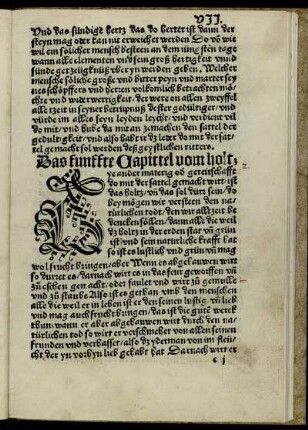 VII.
Und das sündige hertz das do herter ist dann der
steyn mag oder kan nit erweichet werden Do vō wie
wil ein solicher mensch besteen an dem iungsten tage
wann alle elementen vn̄ seyn groß hertigkeit vmb di
sünde gezeügknüß vber yn werden geben. Welcher
mensche sölliche groß vnd bitter peyn vnd marter sey
nes schöpffers vnd herren volkomlich betrachten möch
te vnd widerwertigkeit der were on allen zweyffel
alle zeit in seyner betrüpnüß dester gedultiger vnd
würde im alles seyn leyden leycht/ vnd verdienet vil
do mit/ vnd hübe da mit an zu machen den sattel der
gedultigkeit/ vnd also habt ir dz leder do mit der sat
tel gemacht sol werden deß geystlichen ritters.
Das fünffte Capittel vom holtz
ye ander materig oō gereitschafft
do mit der sattel gemacht wirt ist
das holtz/ vn̄ das sol dürr sein/ do
bey mögen wir versteen den na-
türlichen todt/ den wir allzeit be
dencken söllen/ dann alle die weil
dz holtz in der erden stat vn̄ grün
ist/ vnd sein natürliche krafft hat
so ist es lustlich vnd grün vnd mag
wol frucht bringen/ aber Wenn es abgehawen wirt
so durret es/ darnach wirt es in das feur geworffen vn̄
zu eschen gen acht/ oder faulet vnd wirt zu gemülle
vnd zu staube Also ist es gethan vmb den menschen
alle die weil er im leben ist er den seinen lustig/ vn̄ lieb
vnd mag auch frucht bringen/ das ist die gute werck
thun/ wann er aber abgehawen wirt durch den na-
türlichen tod so wirt er verschmehet von allen seinen
freunden vnd verhasset/ also dz yderman von im fleü
cht der yn vorhyn lieb gehabt hat Darnach wirt er
c j